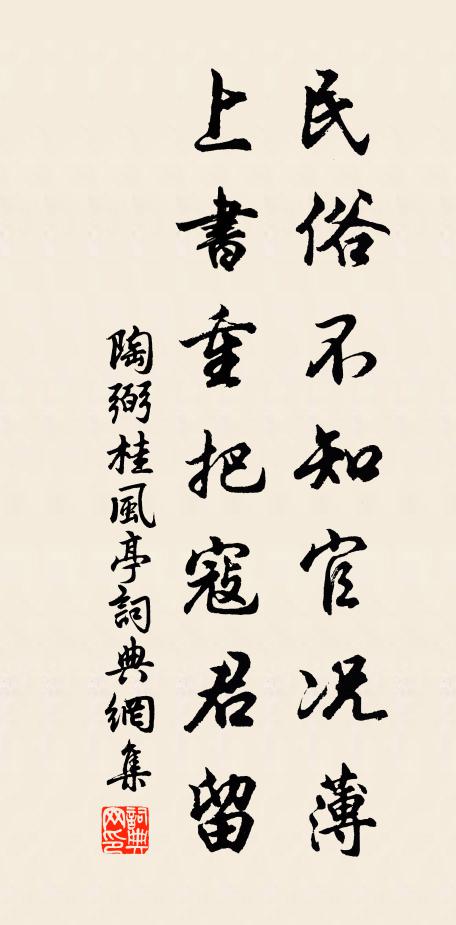 民俗不知官况薄
上書重把寇君留
陶弼桂風亭詞典網集
詞典
网印